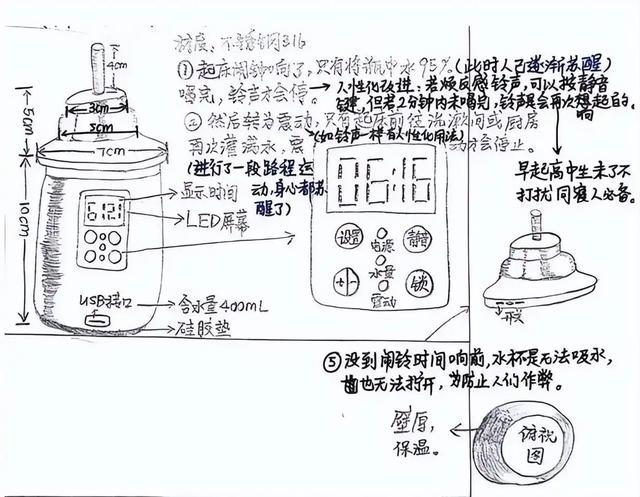 材质: 不锈钢316
①起床闹钟响了,只有将瓶中水95%(此时人已逐渐苏醒)
喝完,铃声才会停。
人性化改进:若烦反感铃声,可以按静音
键,但若2分钟内未喝完,铃声又会再次想起的。
响
②然后转为震动,只有起床前往洗漱间或厨房
再次灌满水,震
动才会停止。
(如铃声一样有人性化用法)
(进行了一段路程运
动,身心都苏
醒了)
早起高中生来了不
打扰同寝人必备。
4cm
3cm
5cm
7cm
5cm
10cm
显示时间
LED屏幕
USB接口
含水量400mL
硅胶垫
06:16
设置
电源
静音
水量
+|-
震动
锁
开关
⑤没到闹铃时间响前,水杯是无法吸水,
也无法拧开,为防止人们作弊。
壁厚,
保温。
俯视
图